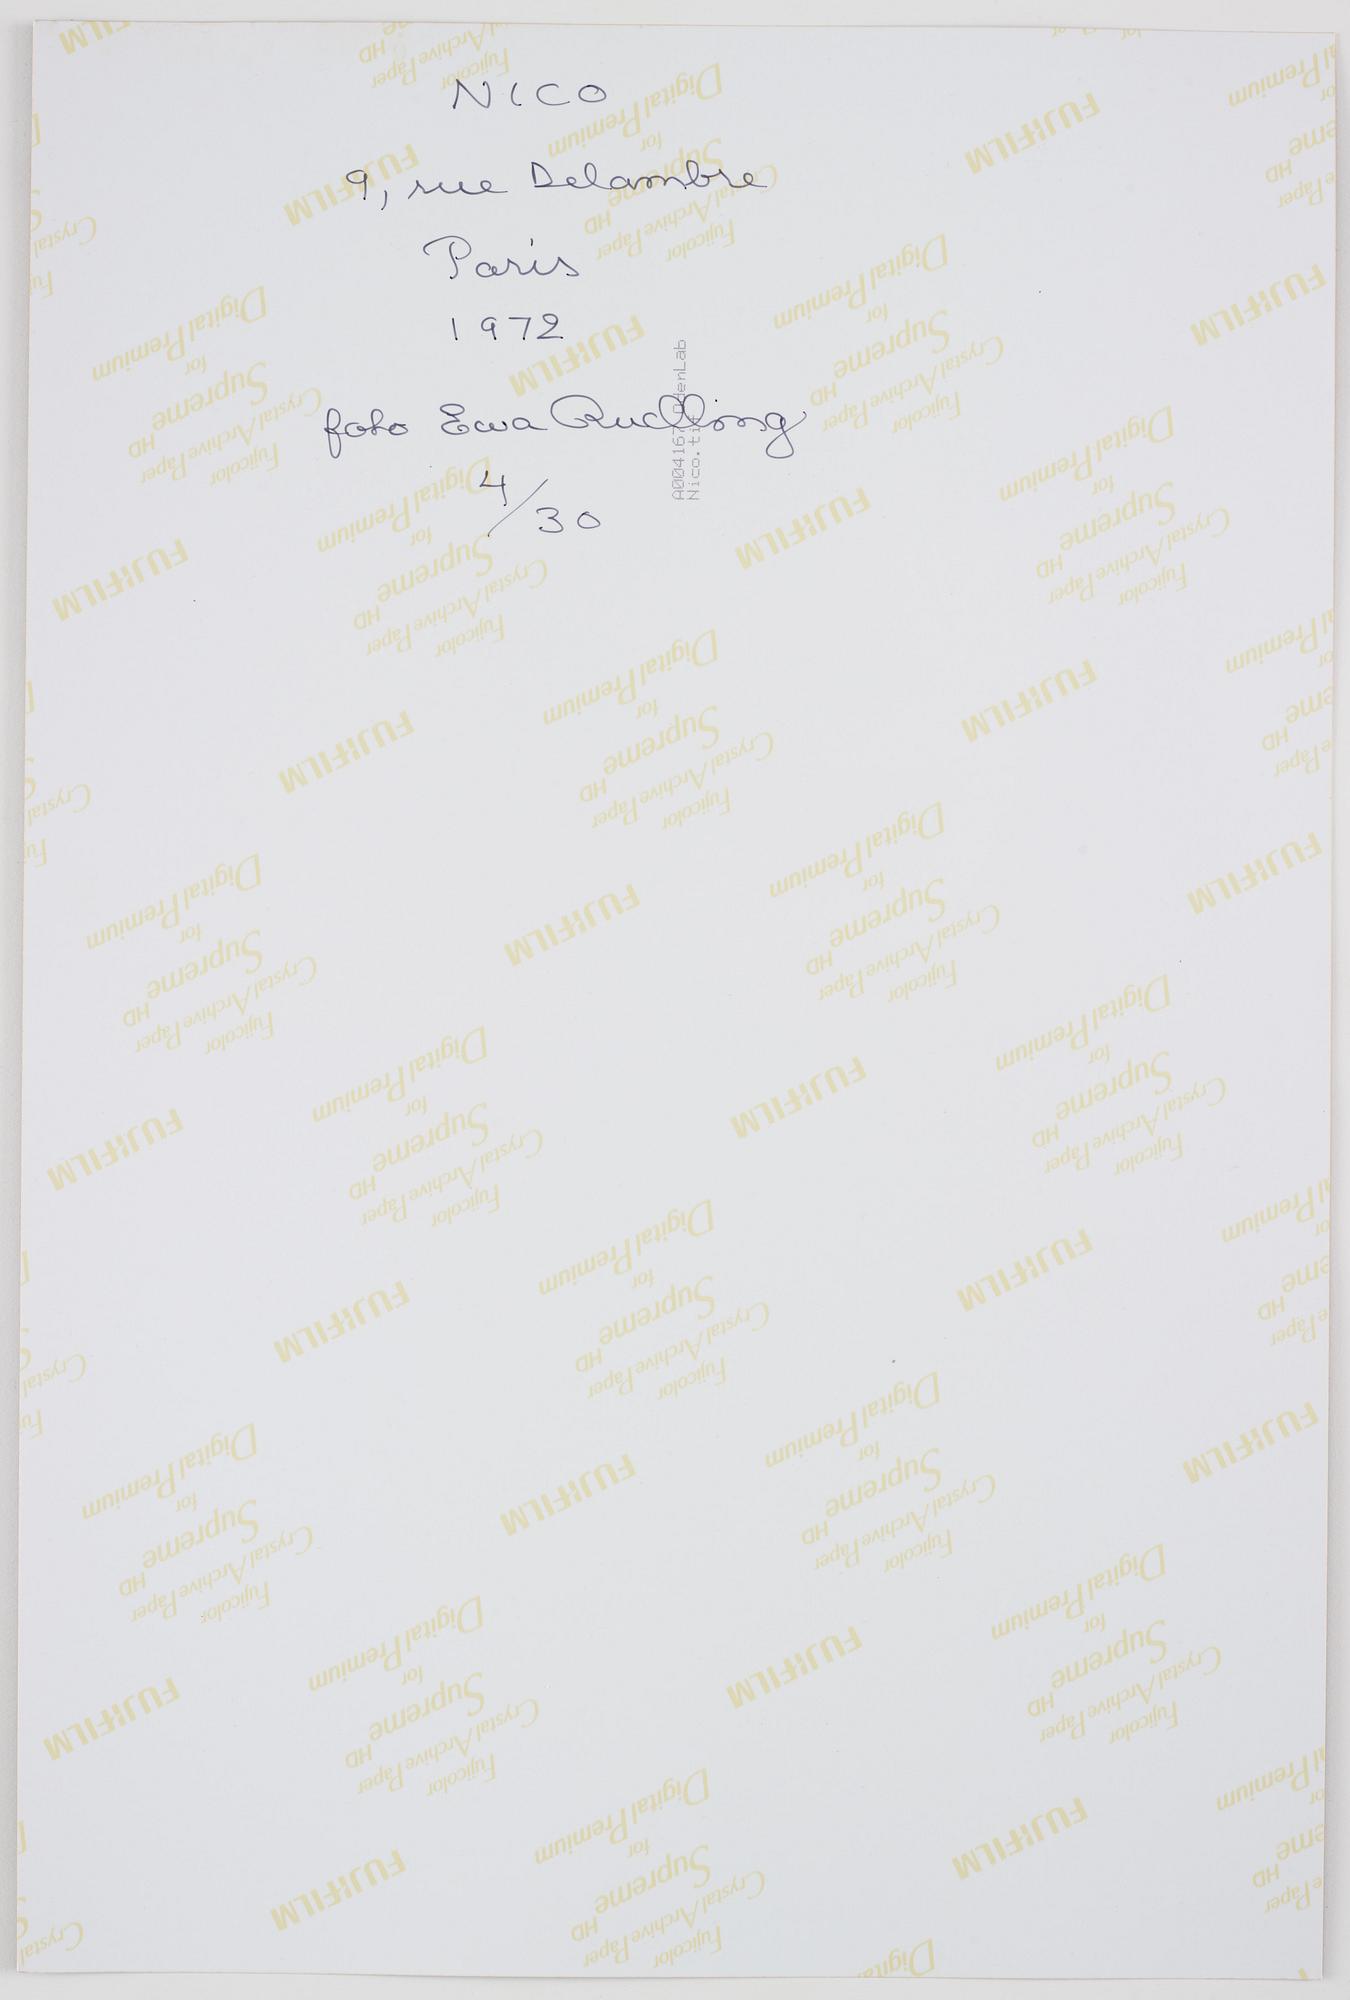 NICO
9, rue Delambre
Paris
1972
foto Ewa Rudling
4/30
Nico.tif
FUJIFILM
Fujicolor
Crystal Archive Paper
Supreme HD
for
Digital Premium